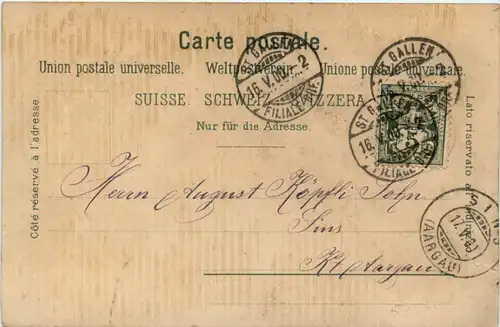 Carte postale.
Union postale universelle. Weltpostverein. Unione postale universale.
SUISSE. SCHWEIZ. SVIZZERA.
Nur für die Adresse.
Côté réservé à l'adresse.
Lato riservato all'indirizzo.
ST. GALLEN
16.V.
FILIALE
ST. GALLEN
ST. GALLEN
16.
FILIALE
SINS
17.V.
(AARGAU)
Herrn August Köpfli Sohn
Sins
Kt Aargau